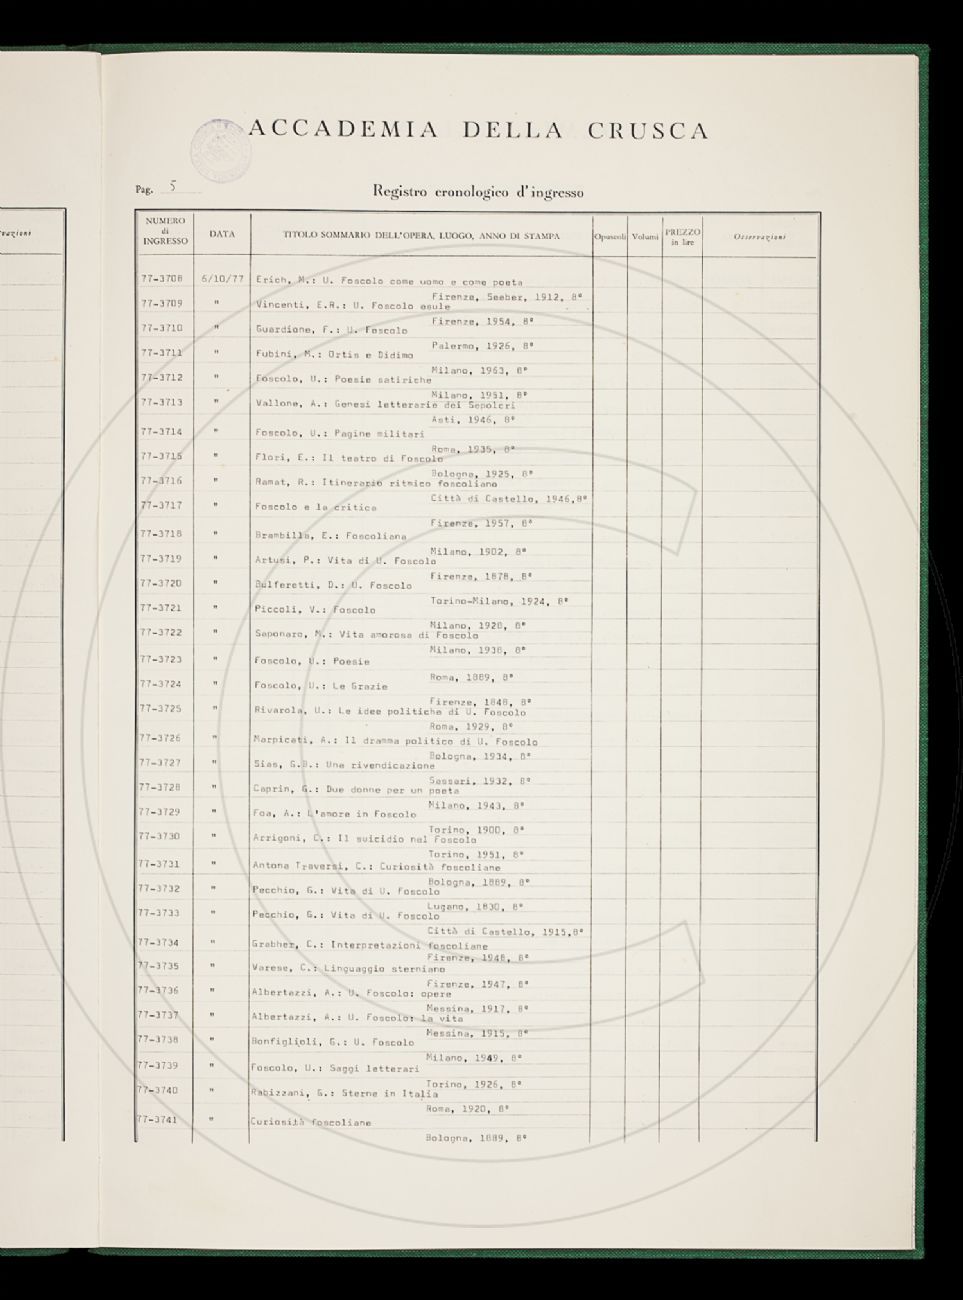 vazioni
ACCADEMIA DELLA CRUSCA
Pag. 5
Registro cronologico d'ingresso
NUMERO di INGRESSO DATA TITOLO SOMMARIO DELL'OPERA, LUOGO, ANNO DI STAMPA Opuscoli Volumi PREZZO in lire Osservazioni
77-3708 6/10/77 Erich, M.: U. Foscolo come uomo e come poeta
Firenze, Seeber, 1912, 8°
77-3709 " Vincenti, E.R.: U. Foscolo esule
Firenze, 1954, 8°
77-3710 " Guardione, F.: U. Foscolo
Palermo, 1926, 8°
77-3711 " Fubini, M.: Ortis e Didimo
Milano, 1963, 8°
77-3712 " Foscolo, U.: Poesie satiriche
Milano, 1951, 8°
77-3713 " Vallone, A.: Genesi letteraria dei Sepolcri
Asti, 1946, 8°
77-3714 " Foscolo, U.: Pagine militari
Roma, 1935, 8°
77-3715 " Flori, E.: Il teatro di Foscolo
Bologna, 1925, 8°
77-3716 " Ramat, R.: Itinerario ritmico foscoliano
Città di Castello, 1946,8°
77-3717 " Foscolo e la critica
Firenze, 1957, 8°
77-3718 " Brambilla, E.: Foscoliana
Milano, 1902, 8°
77-3719 " Artusi, P.: Vita di U. Foscolo
Firenze, 1878, 8°
77-3720 " Bulferetti, D.: U. Foscolo
Torino-Milano, 1924, 8°
77-3721 " Piccoli, V.: Foscolo
Milano, 1928, 8°
77-3722 " Saponaro, M.: Vita amorosa di Foscolo
Milano, 1938, 8°
77-3723 " Foscolo, U.: Poesie
Roma, 1889, 8°
77-3724 " Foscolo, U.: Le Grazie
Firenze, 1848, 8°
77-3725 " Rivarola, U.: Le idee politiche di U. Foscolo
Roma, 1929, 8°
77-3726 " Marpicati, A.: Il dramma politico di U. Foscolo
Bologna, 1934, 8°
77-3727 " Sias, G.B.: Una rivendicazione
Sassari, 1932, 8°
77-3728 " Caprin, G.: Due donne per un poeta
Milano, 1943, 8°
77-3729 " Foa, A.: L'amore in Foscolo
Torino, 1900, 8°
77-3730 " Arrigoni, C.: Il suicidio nel Foscolo
Torino, 1951, 8°
77-3731 " Antona Traversi, C.: Curiosità foscoliane
Bologna, 1889, 8°
77-3732 " Pecchio, G.: Vita di U. Foscolo
Lugano, 1830, 8°
77-3733 " Pecchio, G.: Vita di U. Foscolo
Città di Castello, 1915,8°
77-3734 " Grabher, C.: Interpretazioni foscoliane
Firenze, 1948, 8°
77-3735 " Varese, C.: Linguaggio sterniano
Firenze, 1947, 8°
77-3736 " Albertazzi, A.: U. Foscolo: opere
Messina, 1917, 8°
77-3737 " Albertazzi, A.: U. Foscolo: la vita
Messina, 1915, 8°
77-3738 " Bonfiglioli, G.: U. Foscolo
Milano, 1949, 8°
77-3739 " Foscolo, U.: Saggi letterari
Torino, 1926, 8°
77-3740 " Rabizzani, G.: Sterne in Italia
Roma, 1920, 8°
77-3741 " Curiosità foscoliane
Bologna, 1889, 8°